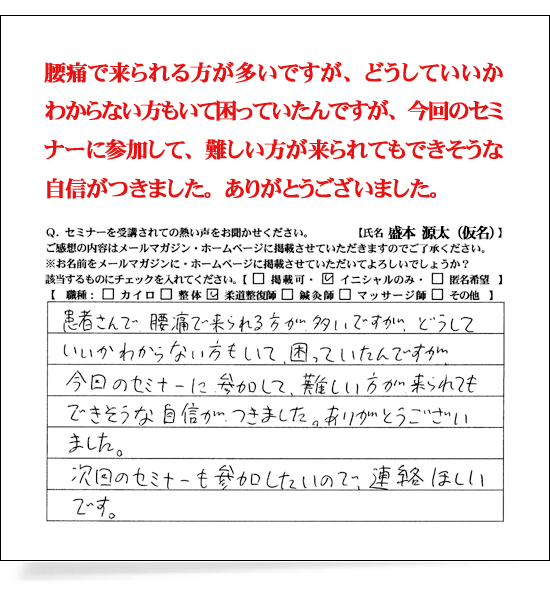 腰痛で来られる方が多いですが、どうしていいか
わからない方もいて困っていたんですが、今回のセミ
ナーに参加して、難しい方が来られてもできそうな
自信がつきました。ありがとうございました。
Q. セミナーを受講されての熱い声をお聞かせください。 【氏名 盛本 源太（仮名）】
ご感想の内容はメールマガジン・ホームページに掲載させていただきますのでご了承ください。
※お名前をメールマガジンに・ホームページに掲載させていただいてよろしいでしょうか？
該当するものにチェックを入れてください。【 □ 掲載可・ ☑ イニシャルのみ・ □ 匿名希望 】
【 職種： □ カイロ □ 整体 ☑ 柔道整復師 □ 鍼灸師 □ マッサージ師 □ その他 】
患者さんで、腰痛で来られる方が多いですが、どうして
いいかわからない方もいて、困っていたんですが
今回のセミナーに参加して、難しい方が来られても
できそうな自信がつきました。ありがとうござい
ました。
次回のセミナーも参加したいので、連絡ほしい
です。